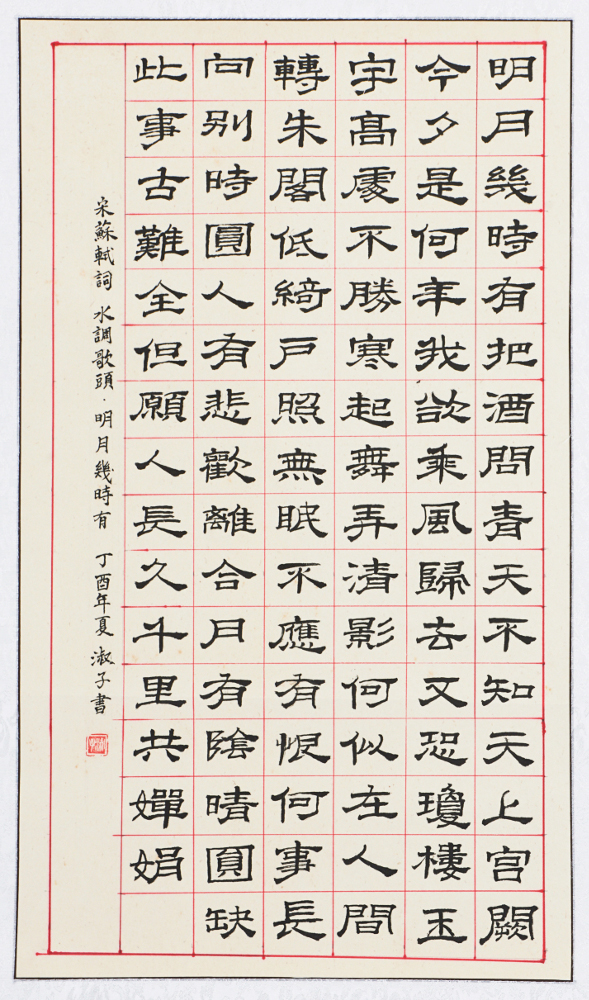 明月幾時有把酒問青天不知天上宮闕
今夕是何年我欲乘風歸去又恐瓊樓玉
宇髙處不勝寒起舞弄清影何似在人間
轉朱閣低綺戶照無眠不應有恨何事長
向別時圓人有悲歡離合月有陰晴圓缺
此事古難全但願人長久千里共嬋娟
宋蘇軾詞 水調歌頭·明月幾時有 丁酉年夏 淑子書